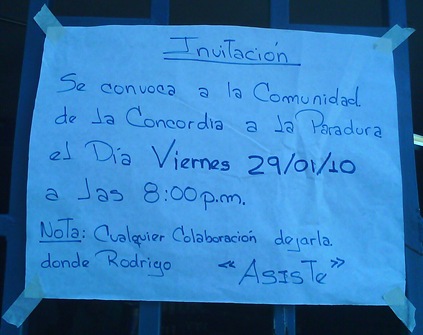 Invitación
Se convoca a la Comunidad
de la Concordia a la Paradura
el Día Viernes 29/01/10
a las 8:00 p.m.
Nota: Cualquier Colaboración dejarla
donde Rodrigo "Asiste"